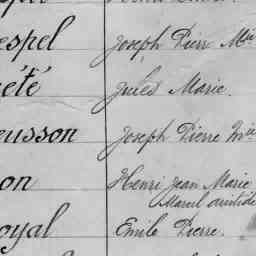 espel Joseph Pierr
été Jules Marie.
usson Joseph Pierre
on Henri Jean Marie
Marcel
oyal Emile Pierre.